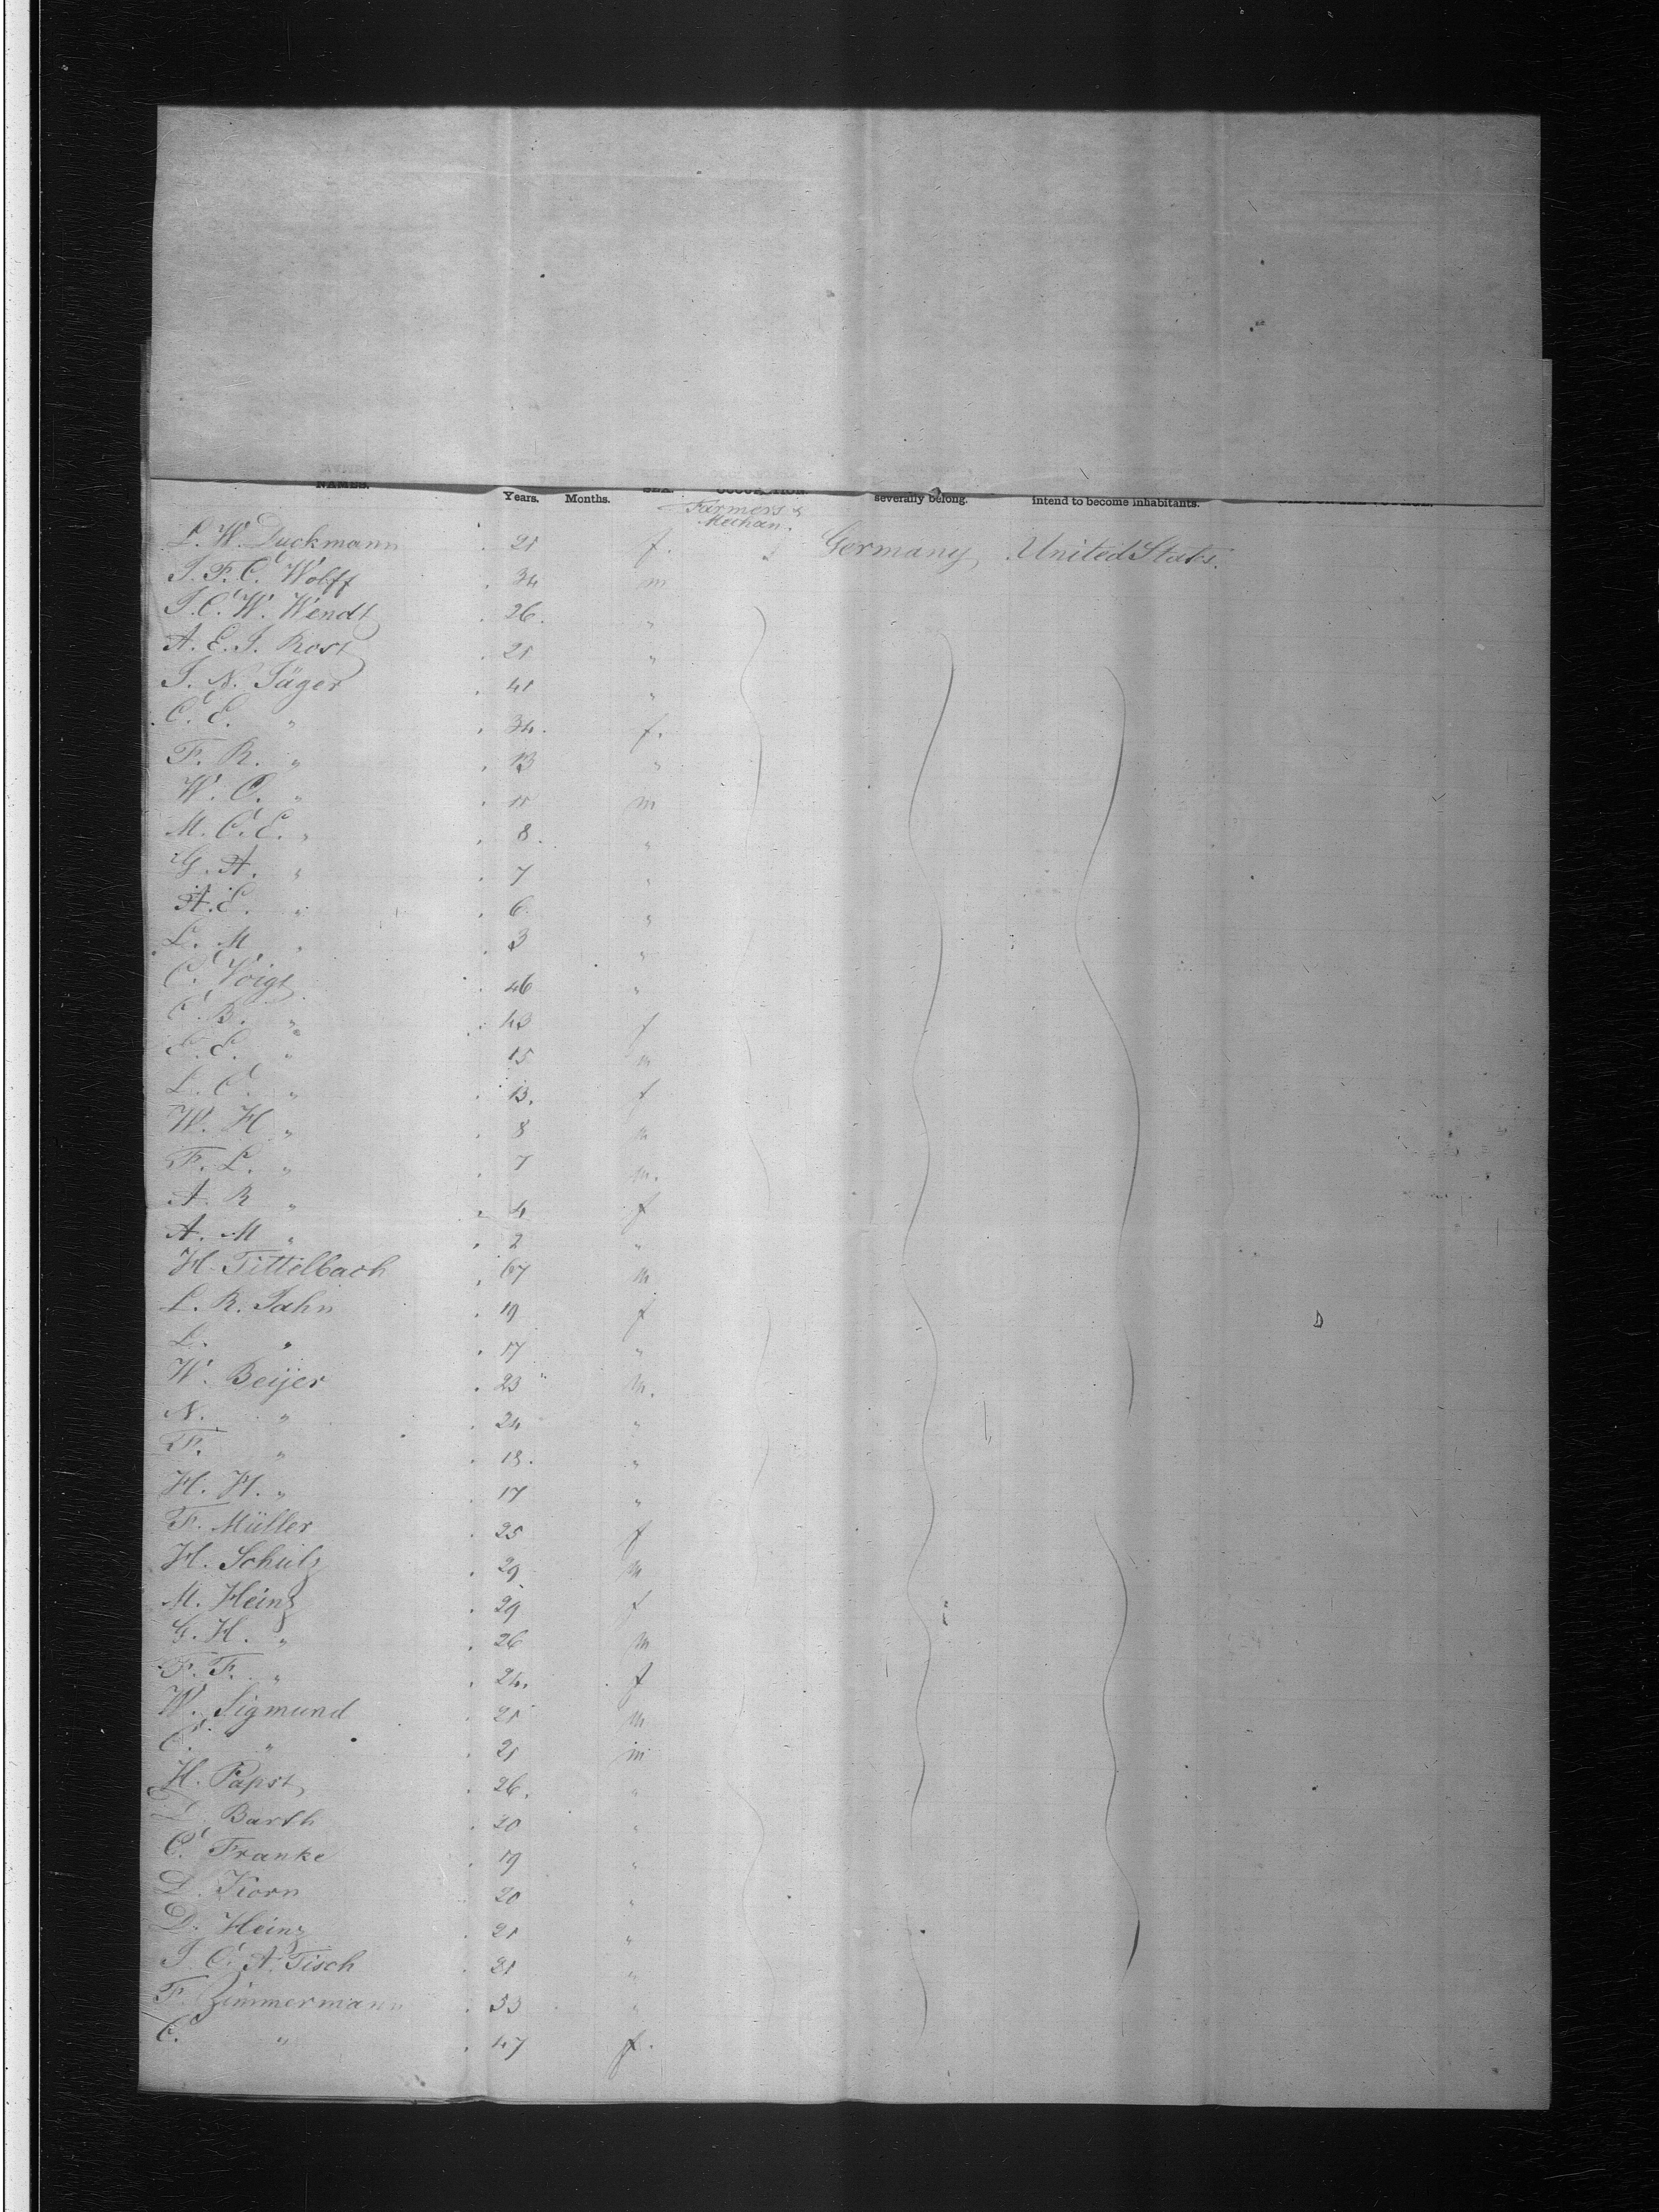 NAMES. Years. Months. SEX. OCCUPATION. severally belong. intend to become inhabitants.
Farmers &
Mechan.
L. W. Duckmann . 21 f. " Germany, United States.
J. F. C. Wolff . 34 m
J. C. W. Wendt . 26. "
A. E. J. Rost . 21 "
J. N. Jäger . 41 "
C. E. " . 34. f.
F. R. " . 13 "
W. C. " . 11 m
M. C. E. " . 8. "
G. A. " . 7 "
A. E. " . 6 "
L. M " . 3 "
C. Voigt . 46 "
C. B. " . 43 f
E. " 15 m
L. C. " . 13. f
W. H " . 8 m
F. L. " . 7 m.
A. R " . 4 f
A. M " . 2 "
H. Tittelbach . 67 m
L. R. Jahn . 19 f
L. " . 17 "
W. Beijer . 23 " m.
N. " . 24 "
F. " . 18. "
H. H. " . 17 "
F. Müller . 25 f
H. Schulz . 29 m
M. Heinz . 29 f
G. H. " . 26 m
F. F. " . 24. f
W. Sigmund . 21 m
C. " . 21 m
H. Papst . 26. "
D. Barth . 20 "
C. Franke . 19 "
D. Korn 20 "
D. Heinz . 21 "
J. C. A. Tisch . 21 "
F. Zimmermann . 53 "
C. " . 47 f.